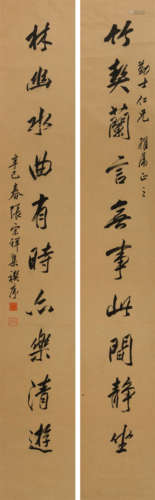 勤士仁兄雅属正之
竹契蘭言無事此間静坐
林幽水曲有時亦樂清遊
辛巳春張宗祥集禊序